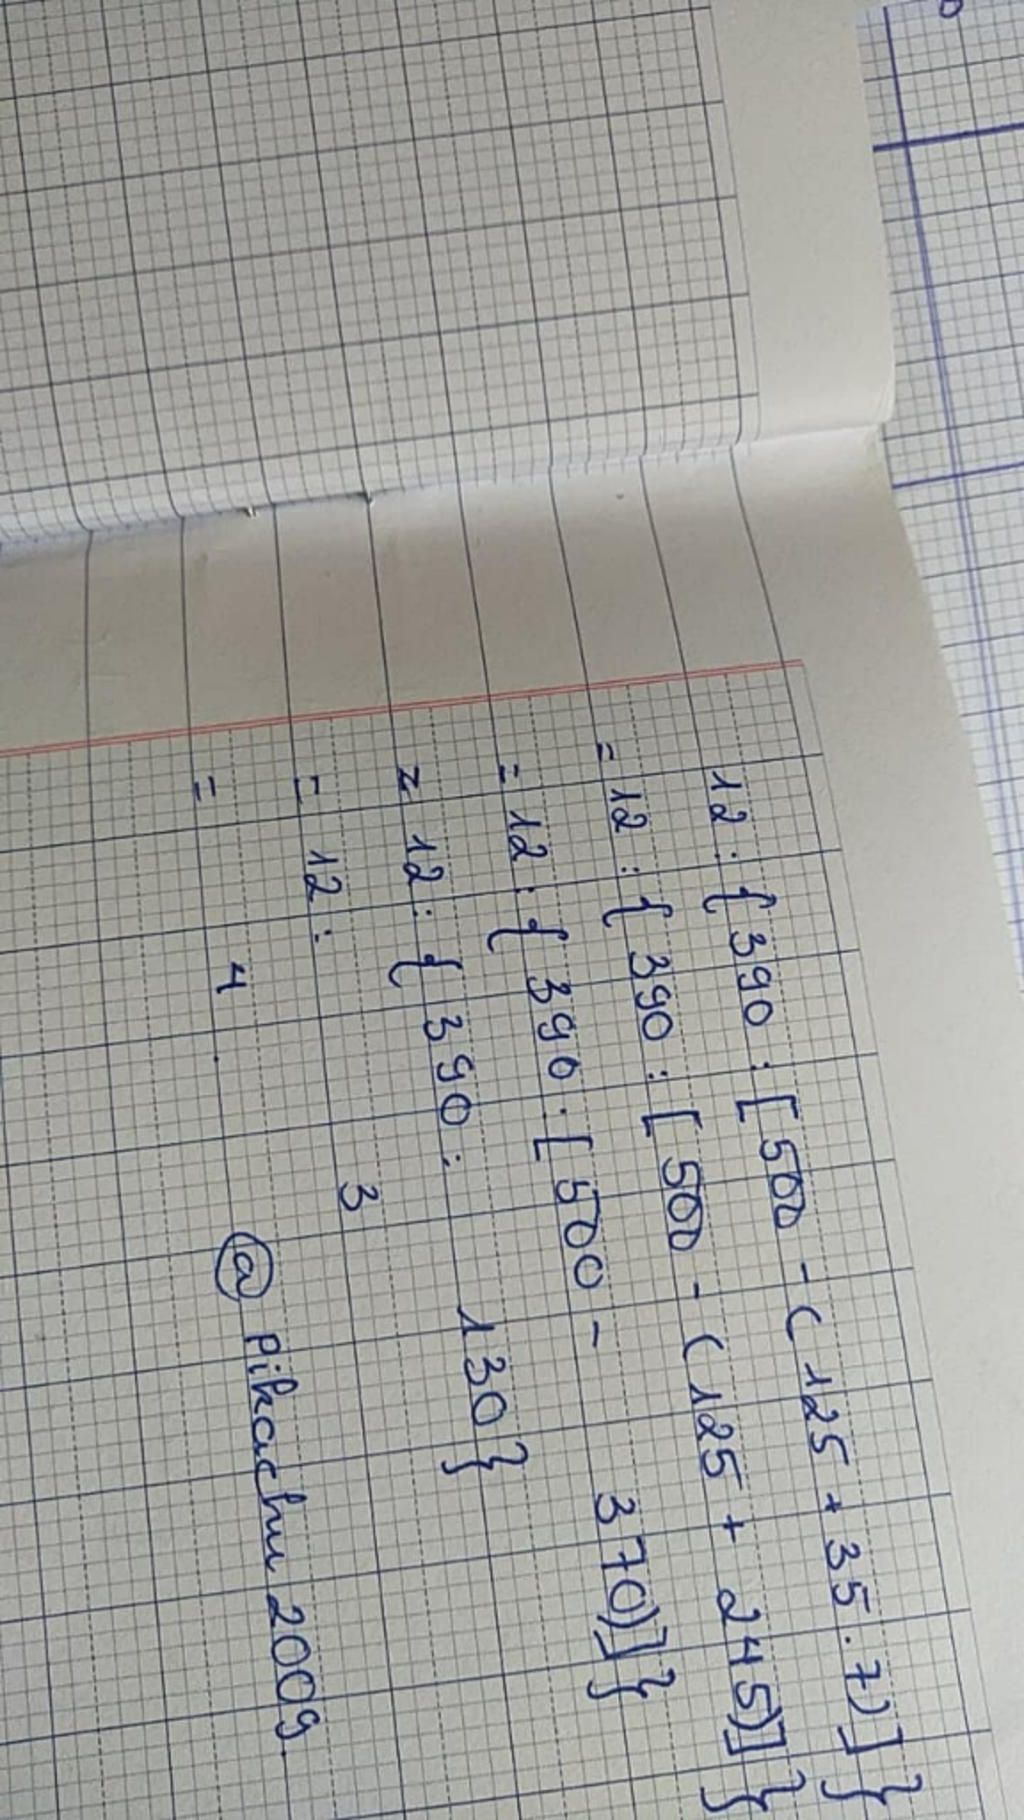 12 : { 390 : [ 500 - ( 125 + 35 . 7 ) ] }
= 12 : { 390 : [ 500 - ( 125 + 245) ] }
= 12 : { 390 : [ 500 - 370) ] }
= 12 : { 390 : 130 }
= 12 : 3
= 4 .
@ Pikachu 2009.